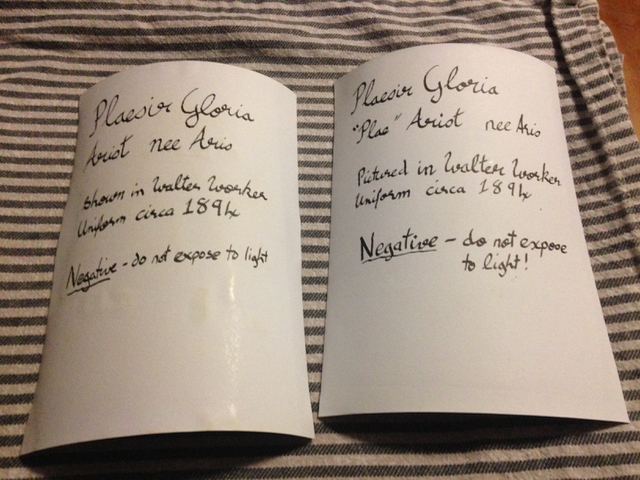 Plaesir Gloria
Arist nee Aris
shown in Walter Worker
Uniform circa 1894
Negative - do not expose to light
Plaesir Gloria
"Plae" Arist nee Aris
Pictured in Walter Worker
Uniform circa 1894
Negative - do not expose
to light!